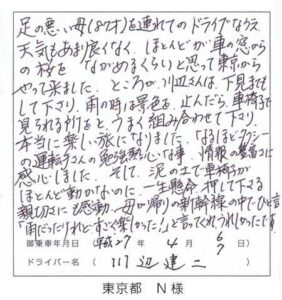 足の悪い母(87才)を連れてのドライブなうえ
天気もあまり良くなく、ほとんどが車の窓から
の桜を ながめるくらいと思って東京から
やって来ました。ところが川辺さんは、下見まで
して下り、雨の時は景色を、止んだら、車椅子で
見られる所をと、うまく組み合わせて下り、
本当に楽しい旅になりました。なるほどタクシー
の運転手さんの勉強熱心な事、情報の豊富さに
感心しました。そして、泥の上で車椅子が
ほとんど動かないのに、一生懸命、押して下さる
親切さにも感動。母が帰りの新幹線の中でひと言
「雨だったけれどすごく楽しかった」と言ってくれうれしかったです
御乗車年月日 (平成27年 4月 6日)
ドライバー名 ( 川辺建二 )
東京都 N様